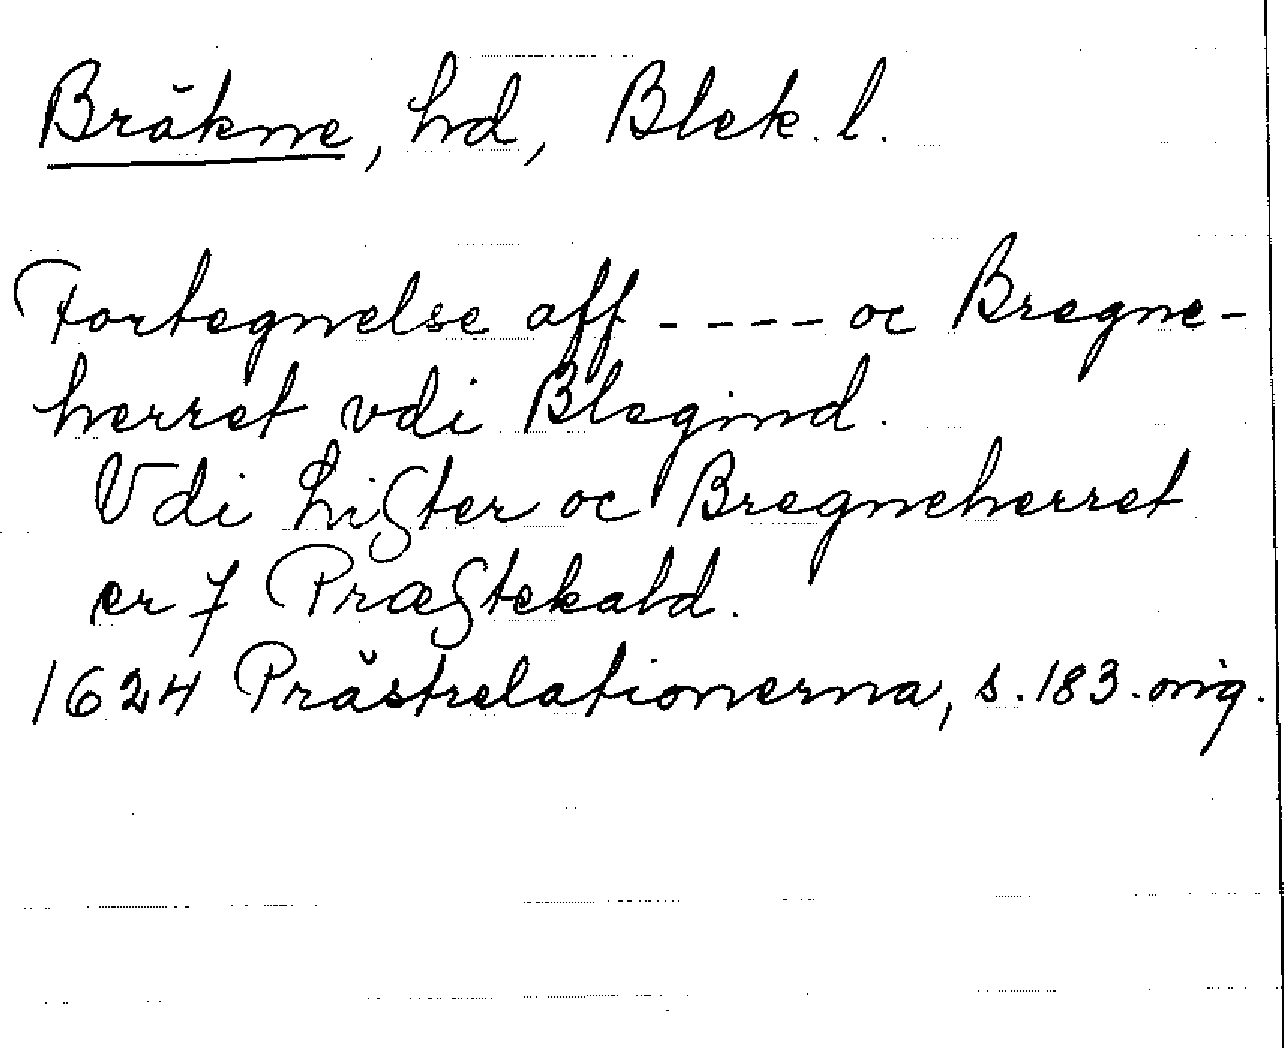 Bräkne, hd, Blek. l.
Fortegnelse aff ---- oc Bregne-
herret vdi Blegind.
Vdi Liſter oc Bregneherret
er 7 Præſtekald.
1624 Prästrelationerna, s. 183. orig.